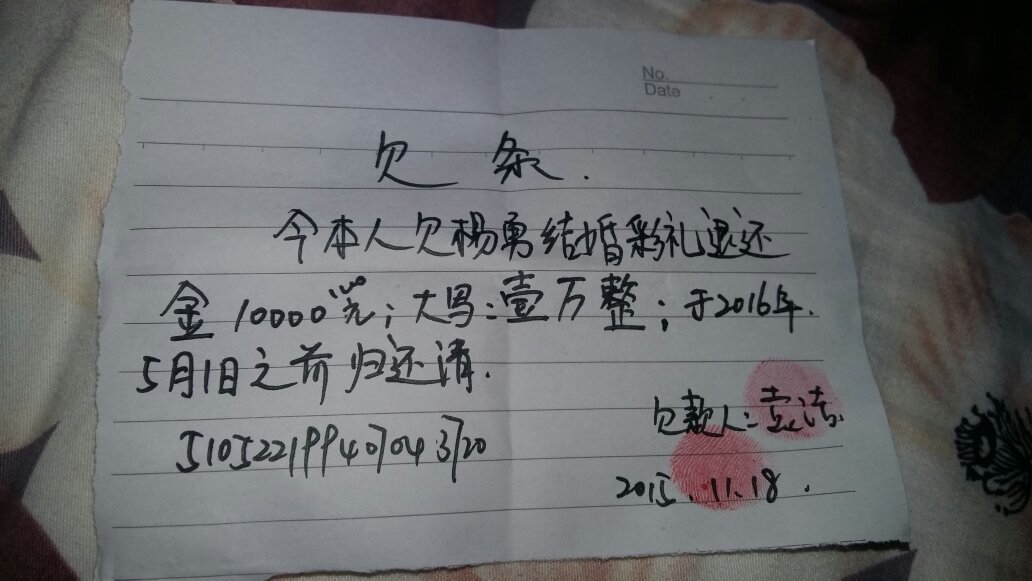 No.
Date
欠 条.
今本人欠杨勇结婚彩礼退还
金10000元；大写：壹万整；于2016年.
5月1日之前归还清.
欠款人：袁洁.
510522199407043720
2015.11.18.